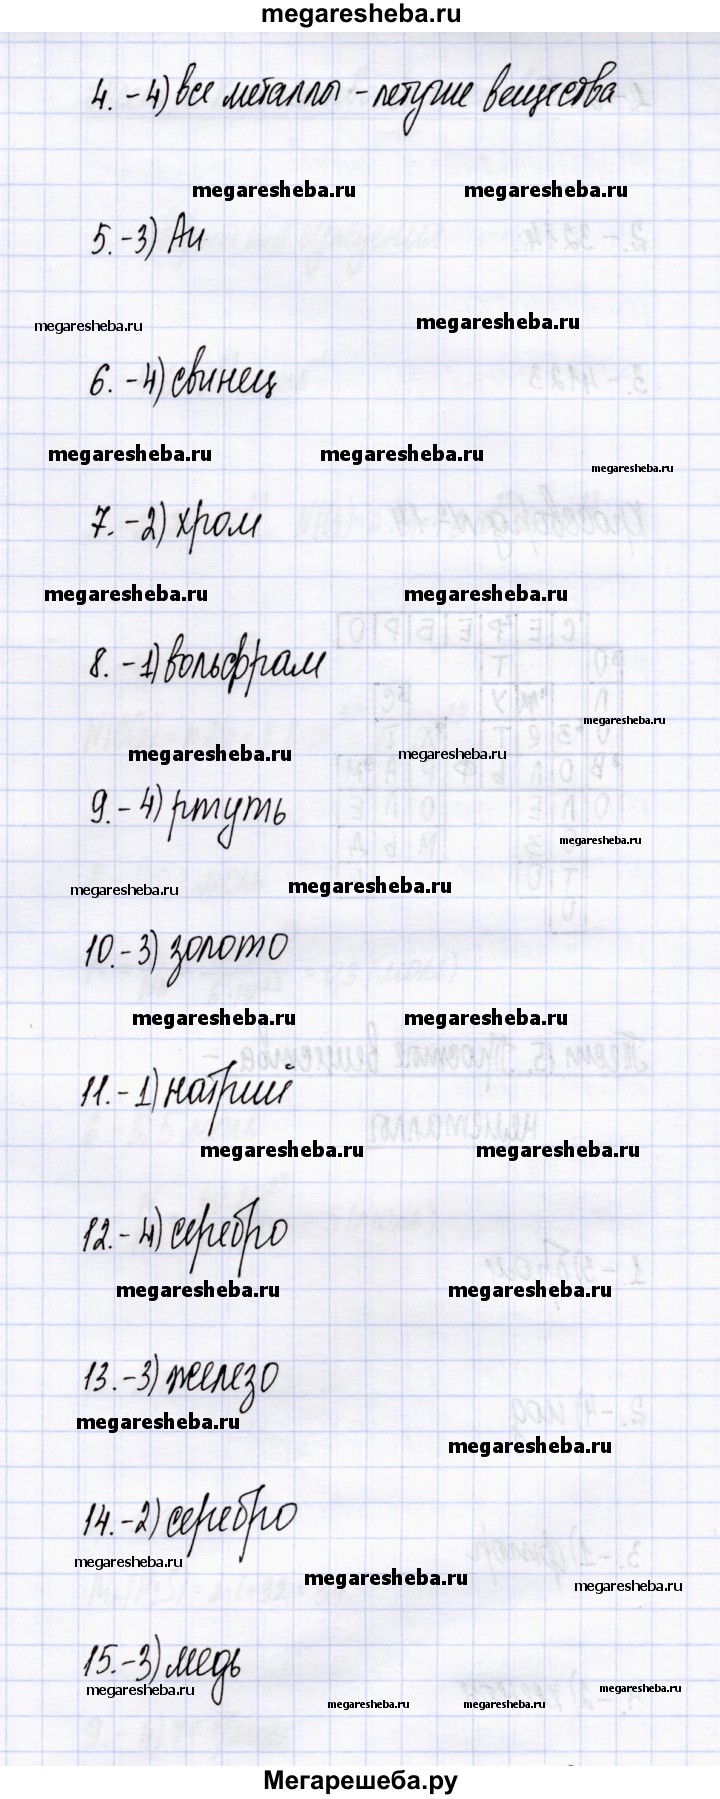 megaresheba.ru
4. - 4) все металлы - летучие вещества
megaresheba.ru megaresheba.ru
5. - 3) Au
megaresheba.ru megaresheba.ru
6. - 4) свинец
megaresheba.ru megaresheba.ru megaresheba.ru
7. - 2) хром
megaresheba.ru megaresheba.ru
8. - 1) вольфрам
megaresheba.ru
megaresheba.ru megaresheba.ru
9. - 4) ртуть
megaresheba.ru
megaresheba.ru megaresheba.ru
10. - 3) золото
megaresheba.ru megaresheba.ru
11. - 1) натрий
megaresheba.ru megaresheba.ru
12. - 4) серебро
megaresheba.ru megaresheba.ru
13. - 3) железо
megaresheba.ru
megaresheba.ru
14. - 2) серебро
megaresheba.ru
megaresheba.ru megaresheba.ru
15. - 3) медь
megaresheba.ru megaresheba.ru
megaresheba.ru megaresheba.ru
Мегарешеба.ру